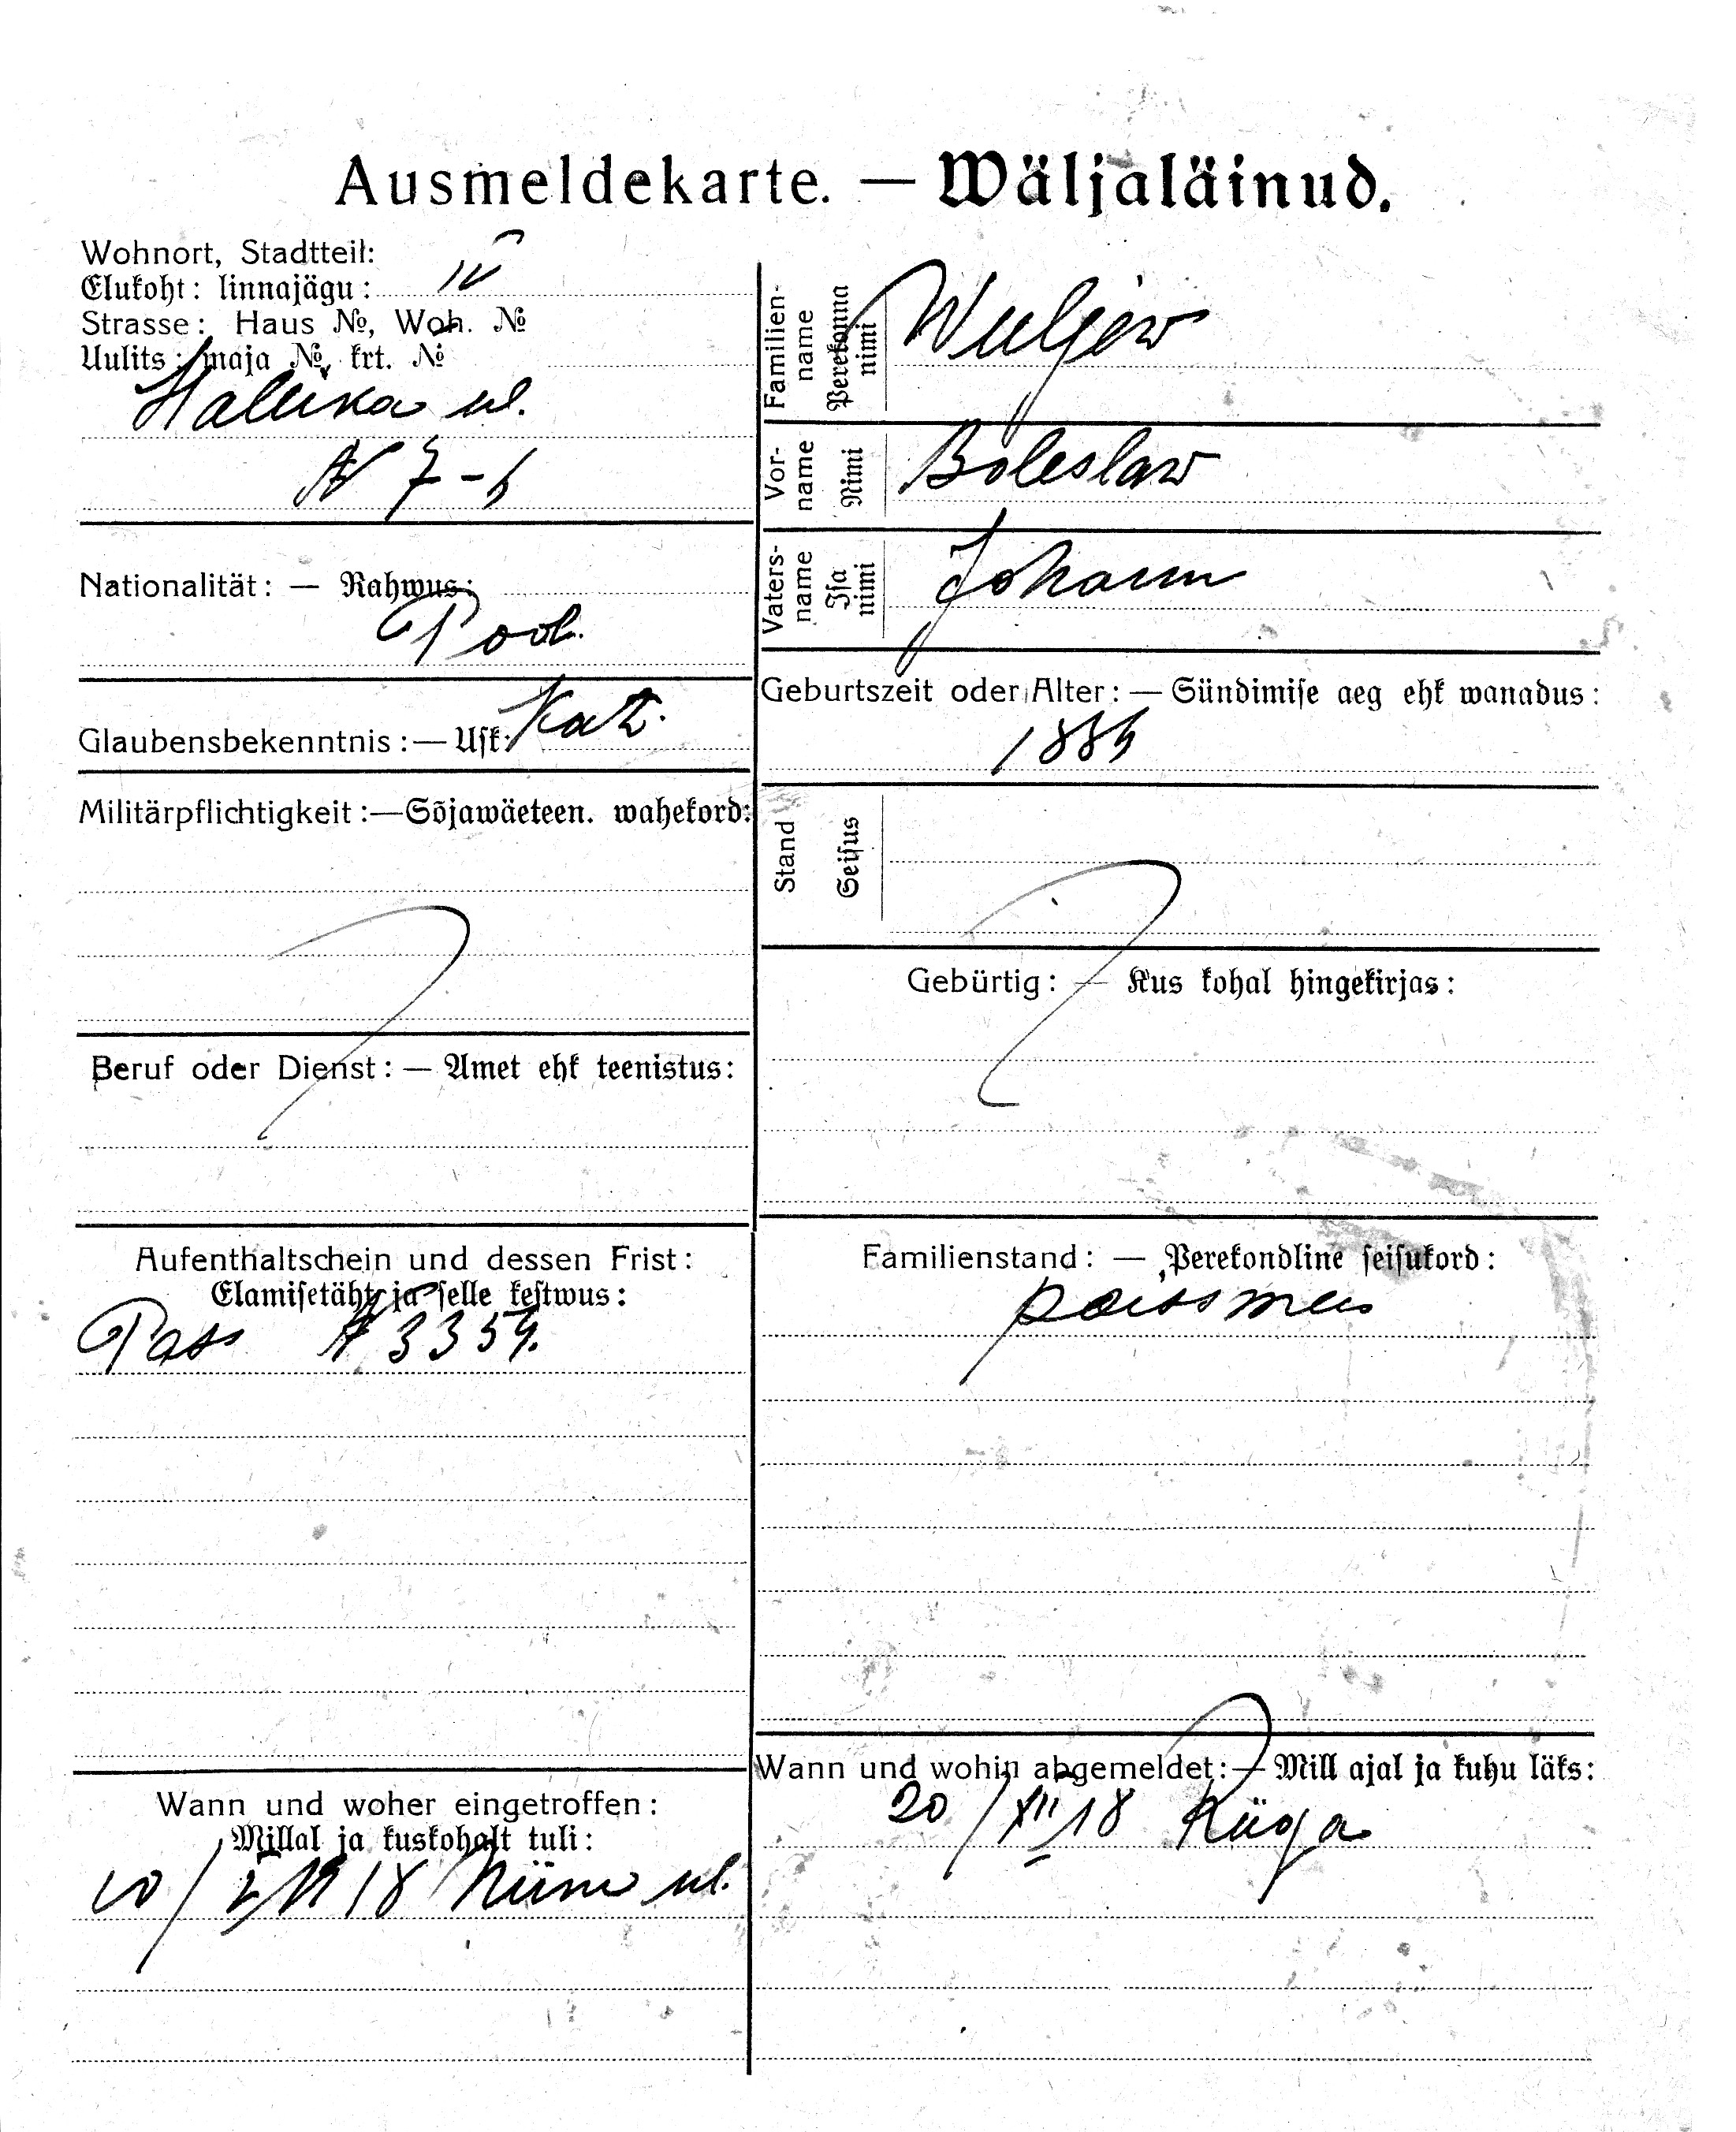 Ausmeldekarte. — Wäljaläinud.
Wohnort, Stadtteil:
Elukoht: linnajägu: IV
Strasse: Haus №, Woh. №
Uulits: maja №, krt. №
ul.
N 7 -
Nationalität: — Rahwus:
Pool.
Glaubensbekenntnis: — Usk: Kat.
Militärpflichtigkeit: — Sõjawäeteen. wahekord:
Beruf oder Dienst: — Amet ehk teenistus:
Aufenthaltschein und dessen Frist:
Elamisetäht ja selle kestwus:
Pass N 3354.
Wann und woher eingetroffen:
Millal ja kuskohalt tuli:
18 ul.
Familien-name Perekonna nimi Wuljew
Vor-name Nimi Boleslaw
Vaters-name Isa nimi Johann
Geburtszeit oder Alter: — Sündimise aeg ehk wanadus:
Stand Seisus
Gebürtig: — Kus kohal hingekirjas:
Familienstand: — Perekondline seisukord:
poissmees
Wann und wohin abgemeldet: — Mill ajal ja kuhu läks:
20/XII 18 Riiga